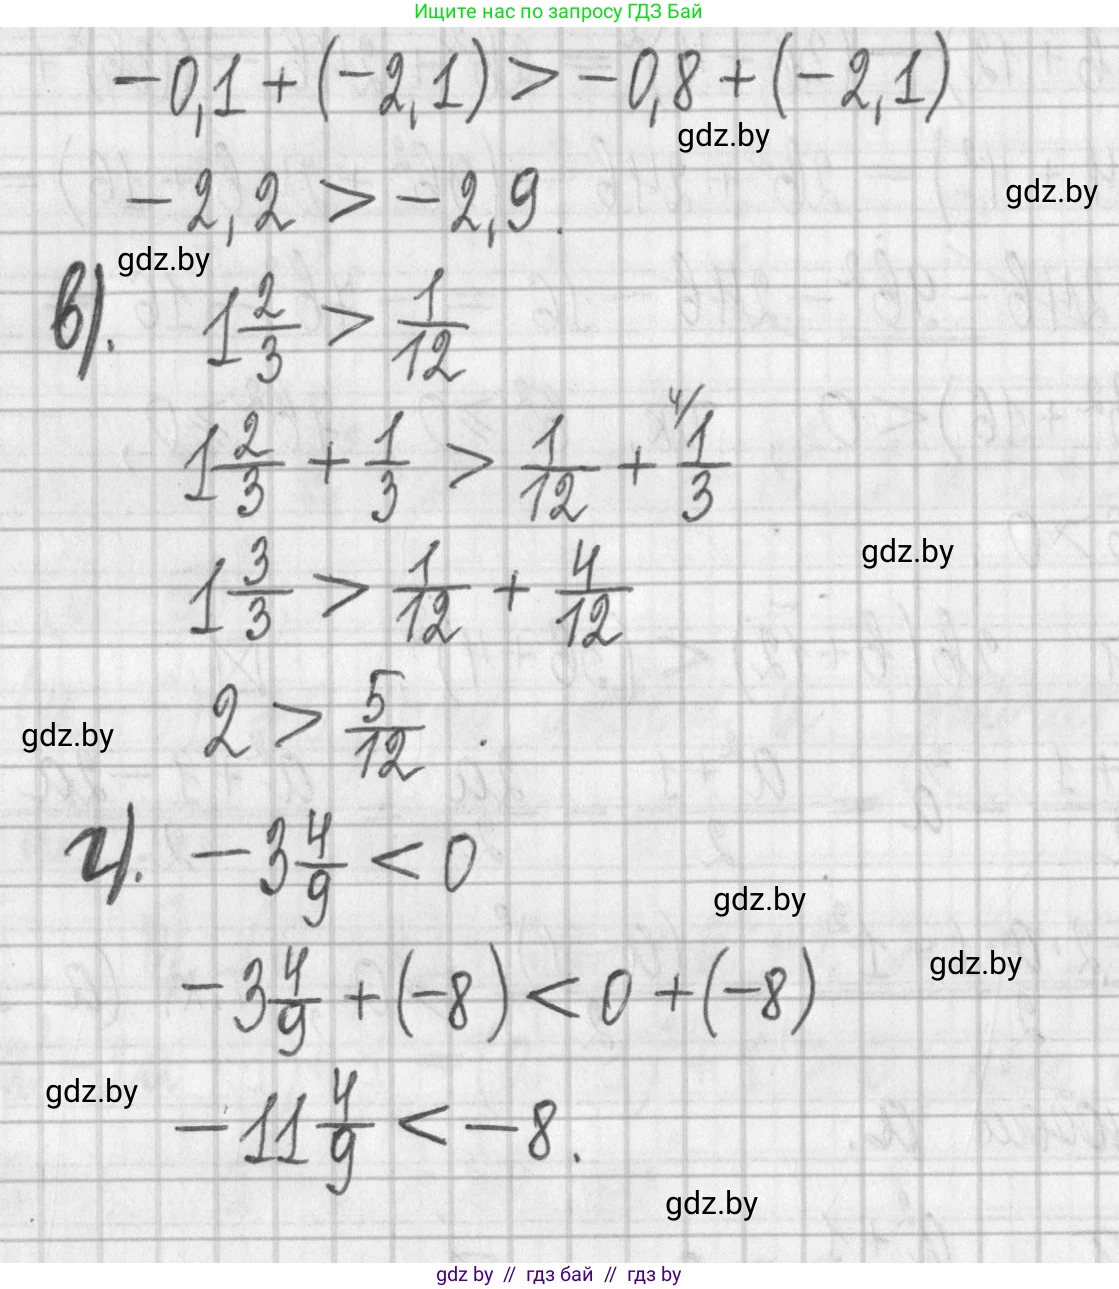 Ищите нас по запросу ГДЗ Бай
-0,1 + (-2,1) > -0,8 + (-2,1)
gdz.by
gdz.by
-2,2 > -2,9.
gdz.by
в). 1 2/3 > 1/12
1 2/3 + 1/3 > 1/12 + 4/ 1/3
gdz.by
1 3/3 > 1/12 + 4/12
gdz.by
2 > 5/12.
г). -3 4/9 < 0
gdz.by
gdz.by
-3 4/9 + (-8) < 0 + (-8)
gdz.by
-11 4/9 < -8.
gdz.by
gdz by // гдз бай // гдз by